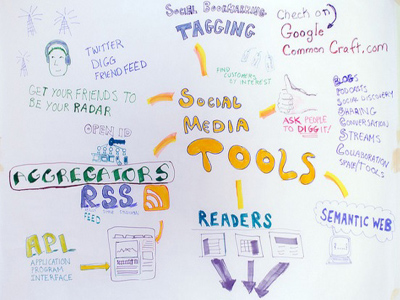 Social Bookmarking
TAGGING
Check out
Google
Common Craft.com
TWITTER
DIGG
FRIENDFEED
FIND
CUSTOMERS
BY INTEREST
GET YOUR FRIENDS TO
BE YOUR RADAR
SOCIAL
MEDIA
TOOLS
ASK PEOPLE
TO DIGG IT!
BLOGS
PODCASTS
SOCIAL DISCOVERY
SHARING
CONVERSATIONS
STREAMS
COLLABORATION
TOOLS
OPEN ID
AGGREGATORS
RSS
FEED
READERS
SEMANTIC WEB
API
APPLICATION
PROGRAM
INTERFACE